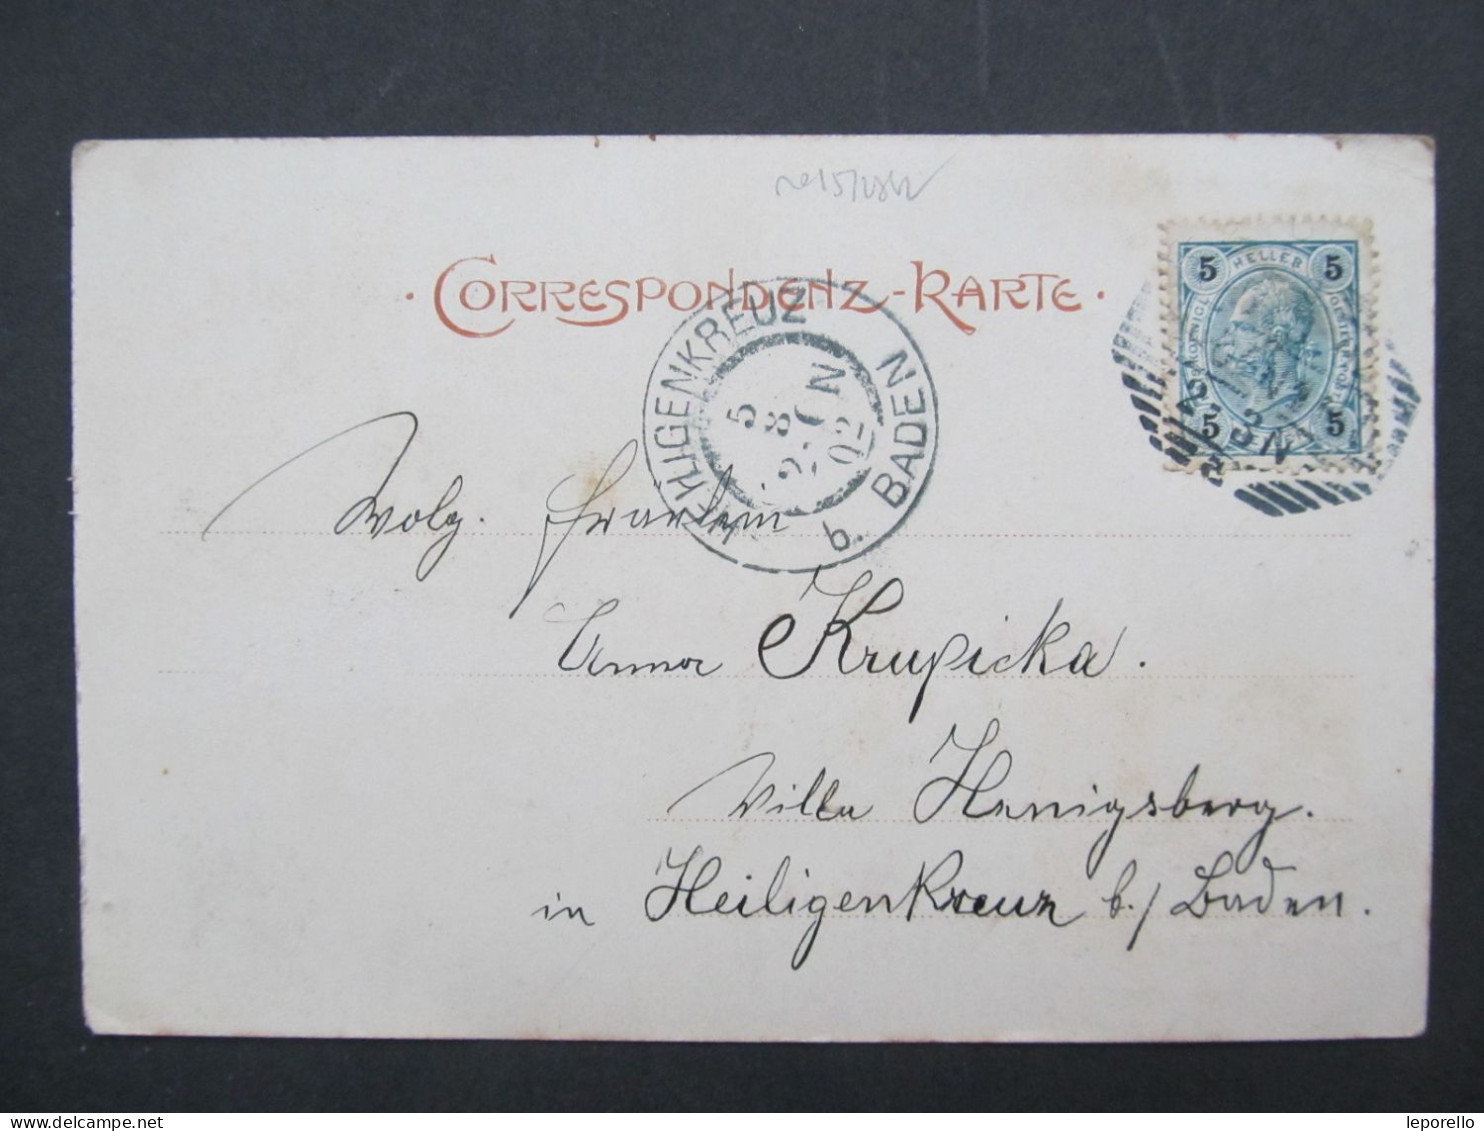 · CORRESPONDENZ-KARTE ·
5 HELLER 5
5 5
HEILIGENKREUZ b. BADEN
5 8
02
Wolg. Fräulein
Anna Krupicka.
Villa Henigsberg.
in Heiligenkreuz b./ Baden.
www.delcampe.net
leporello